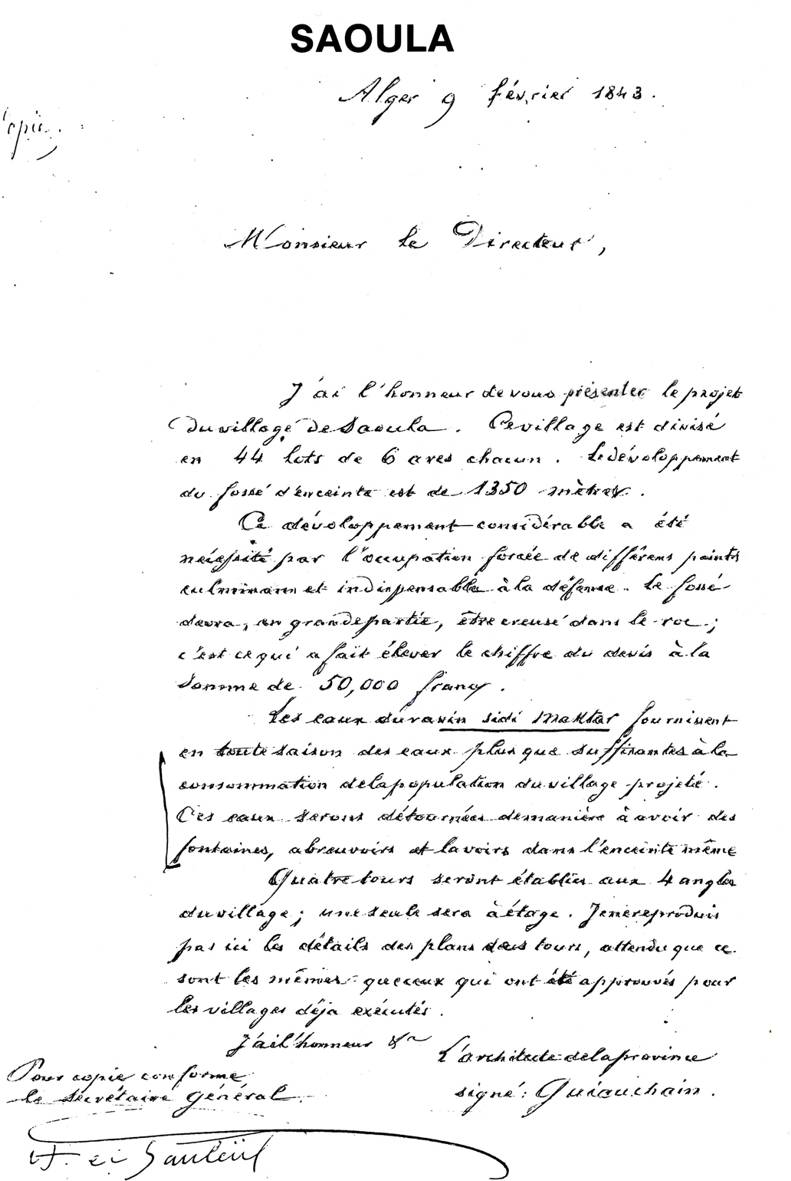 SAOULA
Alger 9 février 1843.
Copie.
Monsieur le Directeur,
J'ai l'honneur de vous présenter le projet
du village de Saoula. Ce village est divisé
en 44 lots de 6 ares chacun. Le développement
du fossé d'enceinte est de 1350 mètres.
Ce développement considérable a été
nécessité par l'occupation forcée de différens points
culminans et indispensable à la défense. Le fossé
devra, en grande partie, être creusé dans le roc;
c'est ce qui a fait élever le chiffre du devis à la
somme de 50,000 francs.
Les eaux du ravin sidi Maktar fournissent
en toute saison des eaux plus que suffisantes à la
consommation de la population du village projeté.
Ces eaux seront détournées de manière à avoir des
fontaines, abreuvoirs et lavoirs dans l'enceinte même
Quatre tours seront établies aux 4 angles
du village; une seule sera à étage. Je ne reproduis
pas ici les détails des plans des tours, attendu que ce
sont les mêmes que ceux qui ont été approuvés pour
les villages déja exécutés.
J'ai l'honneur &a
L'architecte de la province
signé: Guiauchain.
Pour copie conforme
le secrétaire général